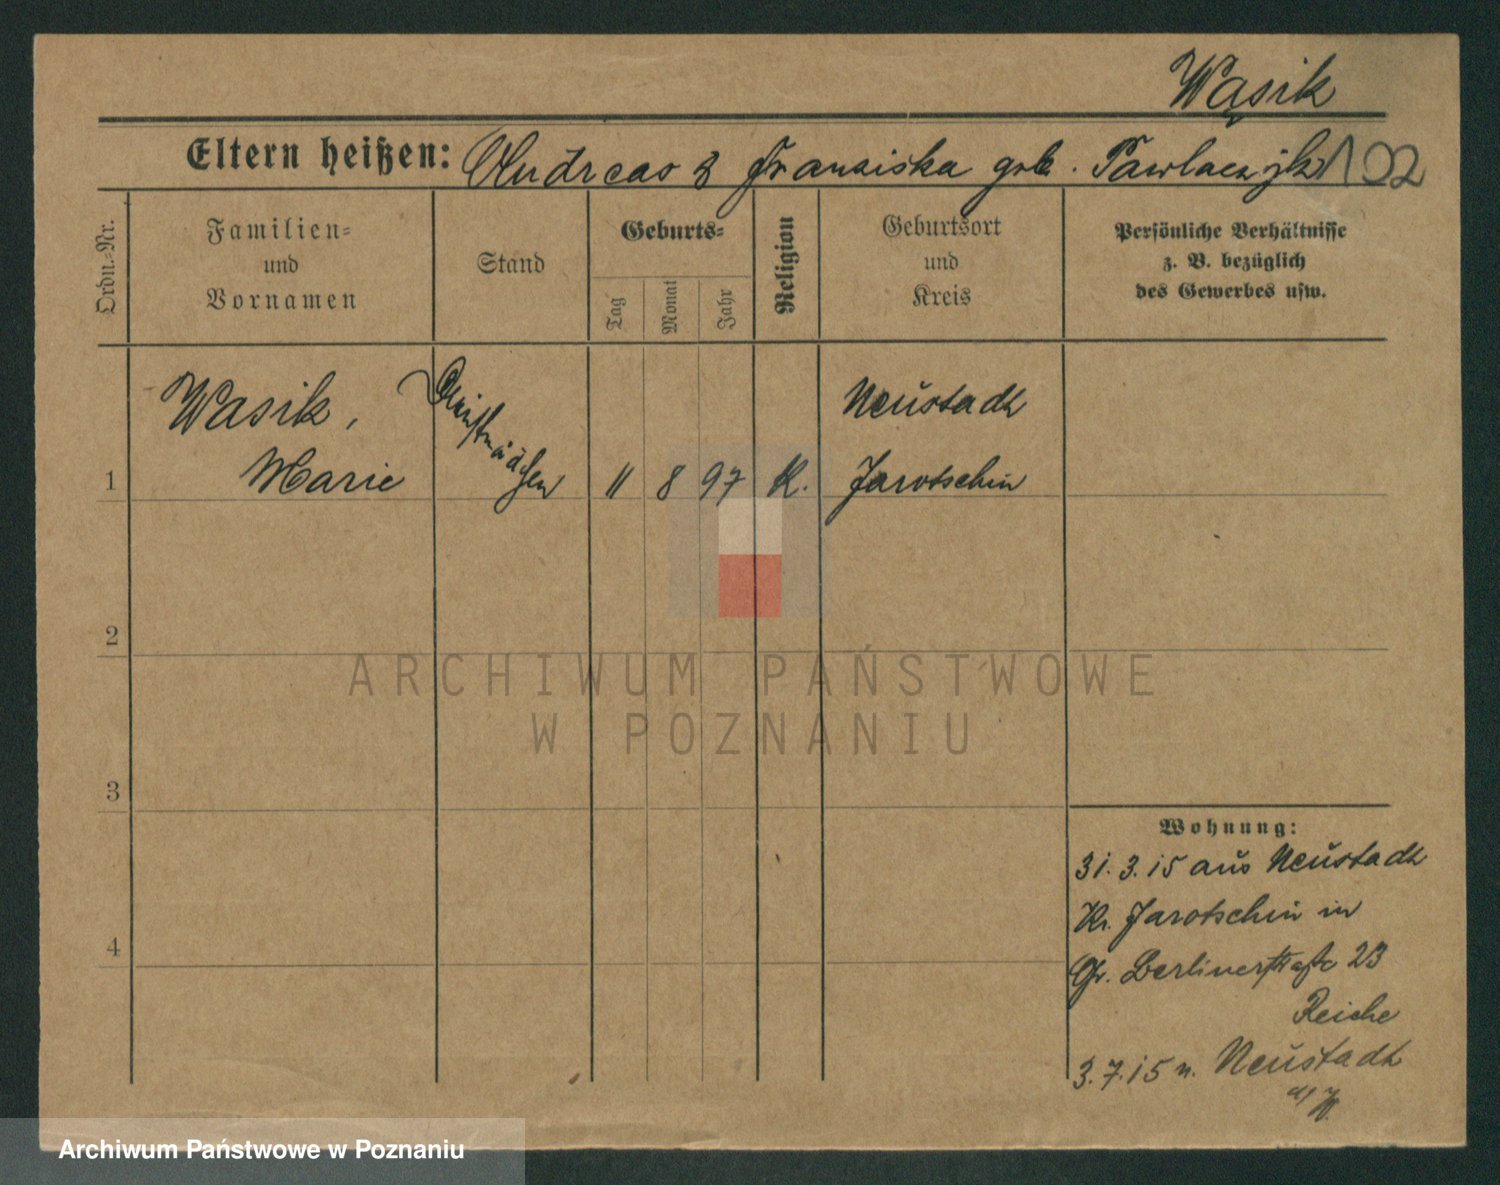 Wąsik
Eltern heißen: Andreas & Franziska geb. Pawlaczyk 102
Ordn.-Nr.
Familien-
und
Vornamen
Stand
Geburts-
Tag
Monat
Jahr
Religion
Geburtsort
und
Kreis
Persönliche Verhältnisse
z. B. bezüglich
des Gewerbes usw.
1
Wasik,
Marie
Dienstmädchen
11 8 97 K.
Neustadt
Jarotschin
2
3
4
Wohnung:
31.3.15 aus Neustadt
Kr. Jarotschin in
Gr. Berlinerstraße 23
Reiche
3.7.15 n. Neustadt
a/W.
ARCHIWUM PAŃSTWOWE
W POZNANIU
Archiwum Państwowe w Poznaniu